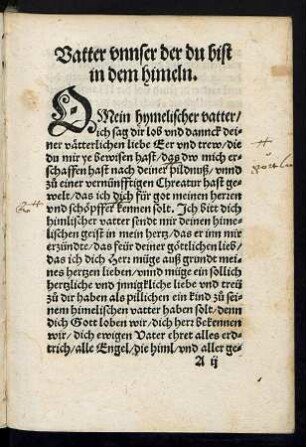 Vatter vnnser der du bist
in dem himeln.
O Mein hymelischer vatter/
ich sag dir lob vnd dannck dei-
ner vätterlichen liebe Eer vnd trew/die
du mir ye bewisen hast/das dw mich er-
schaffen hast nach deiner pildnuß/vnnd
zů einer vernünfftigen Chreatur hast ge-
welt/das ich dich für got meinen herren
vnd schöpffer kennen solt. Ich bitt dich
himlischer vatter sendt mir deinen hime-
lischen geist in mein hertz/das er inn mir
erzündte/das feür deiner götlichen lieb/
das ich dich Herr müge auß grundt mei-
nes hertzen lieben/vnnd müge ein sollich
hertzliche vnd jnnigkliche liebe vnd treü
zů dir haben als pillichen ein kind zů sei-
nem himelischen vatter haben solt/denn
dich Gott loben wir/dich herr bekennen
wir/dich ewigen Vater ehret alles erd-
trich/alle Engel/die himl/vnd aller ge-
A ij